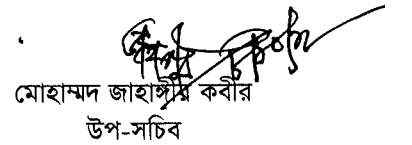 মোহাম্মদ জাহাঙ্গীর কবীর
উপ-সচিব